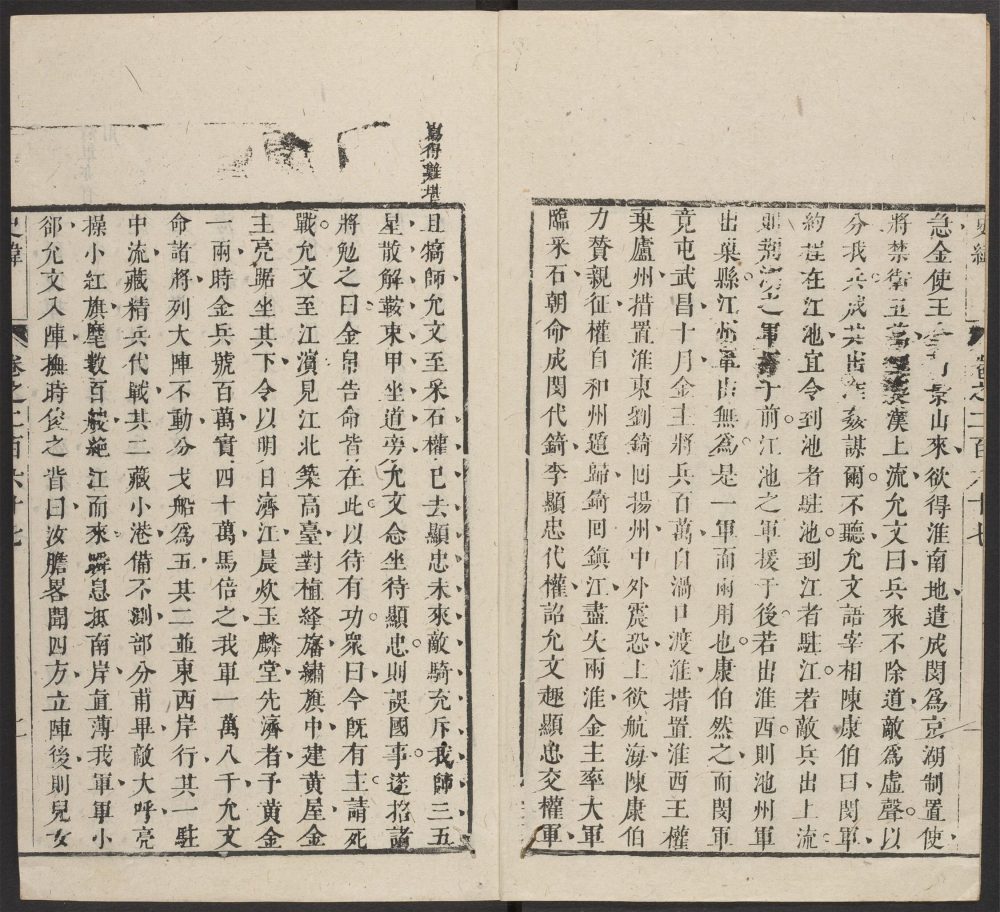 急金使王 景山來欲得淮南地遣成閔爲京湖制置使
將禁衛五萬 漢上流允文曰兵來不除道敵爲虛聲以
分我兵成其出淮姦謀爾不聽允文語宰相陳康伯曰閔軍
約程在江池宜令到池者駐池到江者駐江若敵兵出上流
則荊湖之軍 于前江池之軍援于後若出淮西則池州軍
出巢縣江州軍出無爲是一軍而兩用也康伯然之而閔軍
竟屯武昌十月金主將兵百萬自渦口渡淮措置淮西王權
棄廬州措置淮東劉錡回揚州中外震恐上欲航海陳康伯
力贊親征權自和州遁歸錡回鎮江盡失兩淮金主率大軍
臨采石朝命成閔代錡李顯忠代權詔允文趣顯忠交權軍
寫得難堪
且犒師允文至采石權已去顯忠未來敵騎充斥我師三五
星散解鞍束甲坐道旁允文念坐待顯忠則誤國事遂招諸
將勉之曰金帛告命皆在此以待有功衆曰今旣有主請死
戰允文至江濱見江北築高臺對植絳旛繡旗中建黃屋金
主亮踞坐其下令以明日濟江晨炊玉麟堂先濟者予黃金
一兩時金兵號百萬實四十萬馬倍之我軍一萬八千允文
命諸將列大陣不動分戈船爲五其二並東西岸行其一駐
中流藏精兵代戰其二藏小港備不測部分甫畢敵大呼亮
操小紅旗麾數百艘絶江而來瞬息抵南岸直薄我軍軍小
郤允文入陣撫時俊之背曰汝膽畧聞四方立陣後則兒女
史緯
卷之二百六十七